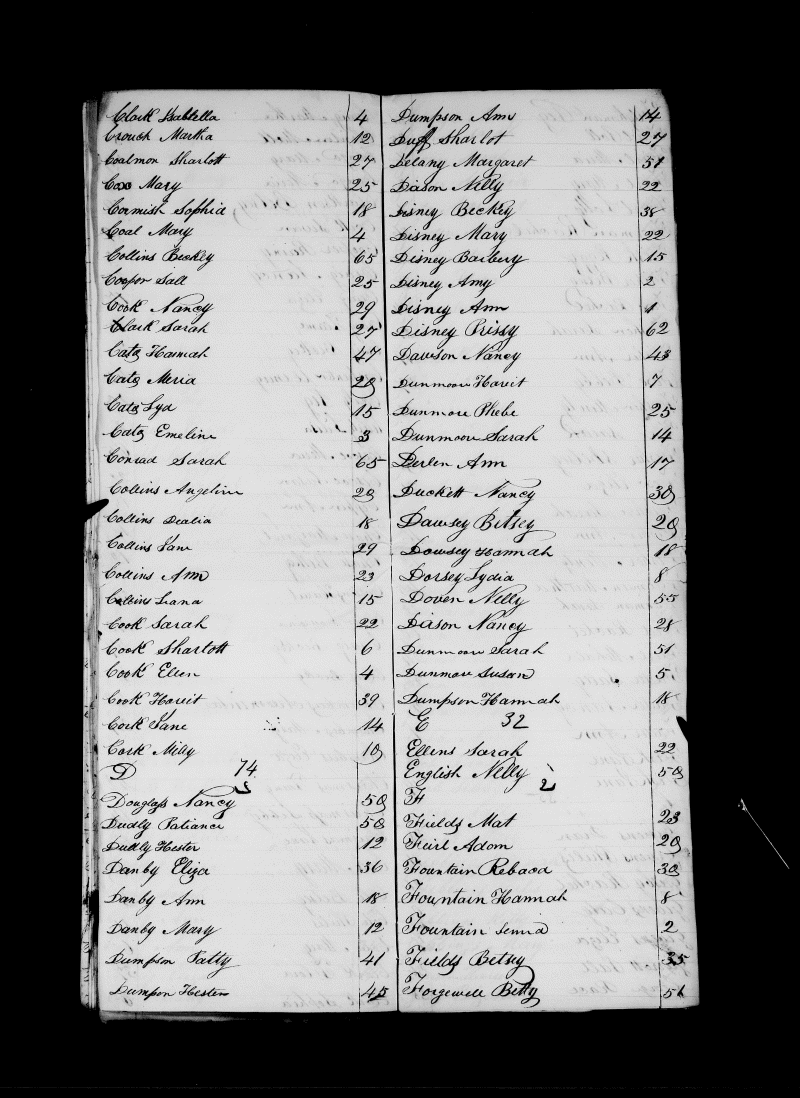 Clark Isabtella 4
Crouch Martha 12
Coalmon Sharlott 27
Cox Mary 25
Cormish Sophia 18
Coal Mary 4
Collins Beckey 65
Cooper Sall 25
Cook Nancy 29
Clark Sarah 27
Cato Hannah 47
Cato Meria 20
Cato Lyd 15
Cato Emeline 3
Conrad Sarah 65
Collins Angeline 20
Collins Dealia 18
Collins Jane 29
Collins Ann 23
Collins Liana 15
Cook Sarah 22
Cook Sharlott 6
Cook Ellen 4
Cook Hariit 39
Cork Jane 14
Cork Milly 10
D 74
Douglass Nancy 50
Dudly Patiance 50
Dudly Hester 12
Danby Eliza 36
Danby Ann 18
Danby Mary 12
Dumpson Patty 41
Dumpson Hester 45
Dumpson Ann 14
Duff Sharlot 27
Delany Margaret 51
Dixson Nelly 22
Disney Beckey 38
Disney Mary 22
Disney Barbery 15
Disney Amy 2
Disney Ann 1
Disney Prissy 62
Dawson Nancy 43
Dunmore Hariit 7
Dunmore Phebe 25
Dunmore Sarah 14
Derlen Ann 17
Duckett Nancy 30
Dawsey Betsey 20
Dowsey Hannah 18
Dorsey Lydia 8
Doven Nelly 55
Dixson Nancy 28
Dunmore Sarah 51
Dunmore Susan 5
Dumpson Hannah 18
E 32
Ellens Sarah 22
English Nelly 50
F 2
Fields Mat 23
Feirl Adom 20
Fountain Rebaca 30
Fountain Hannah 8
Fountain 2
Fields Betsey 35
Forgewell Betty 51